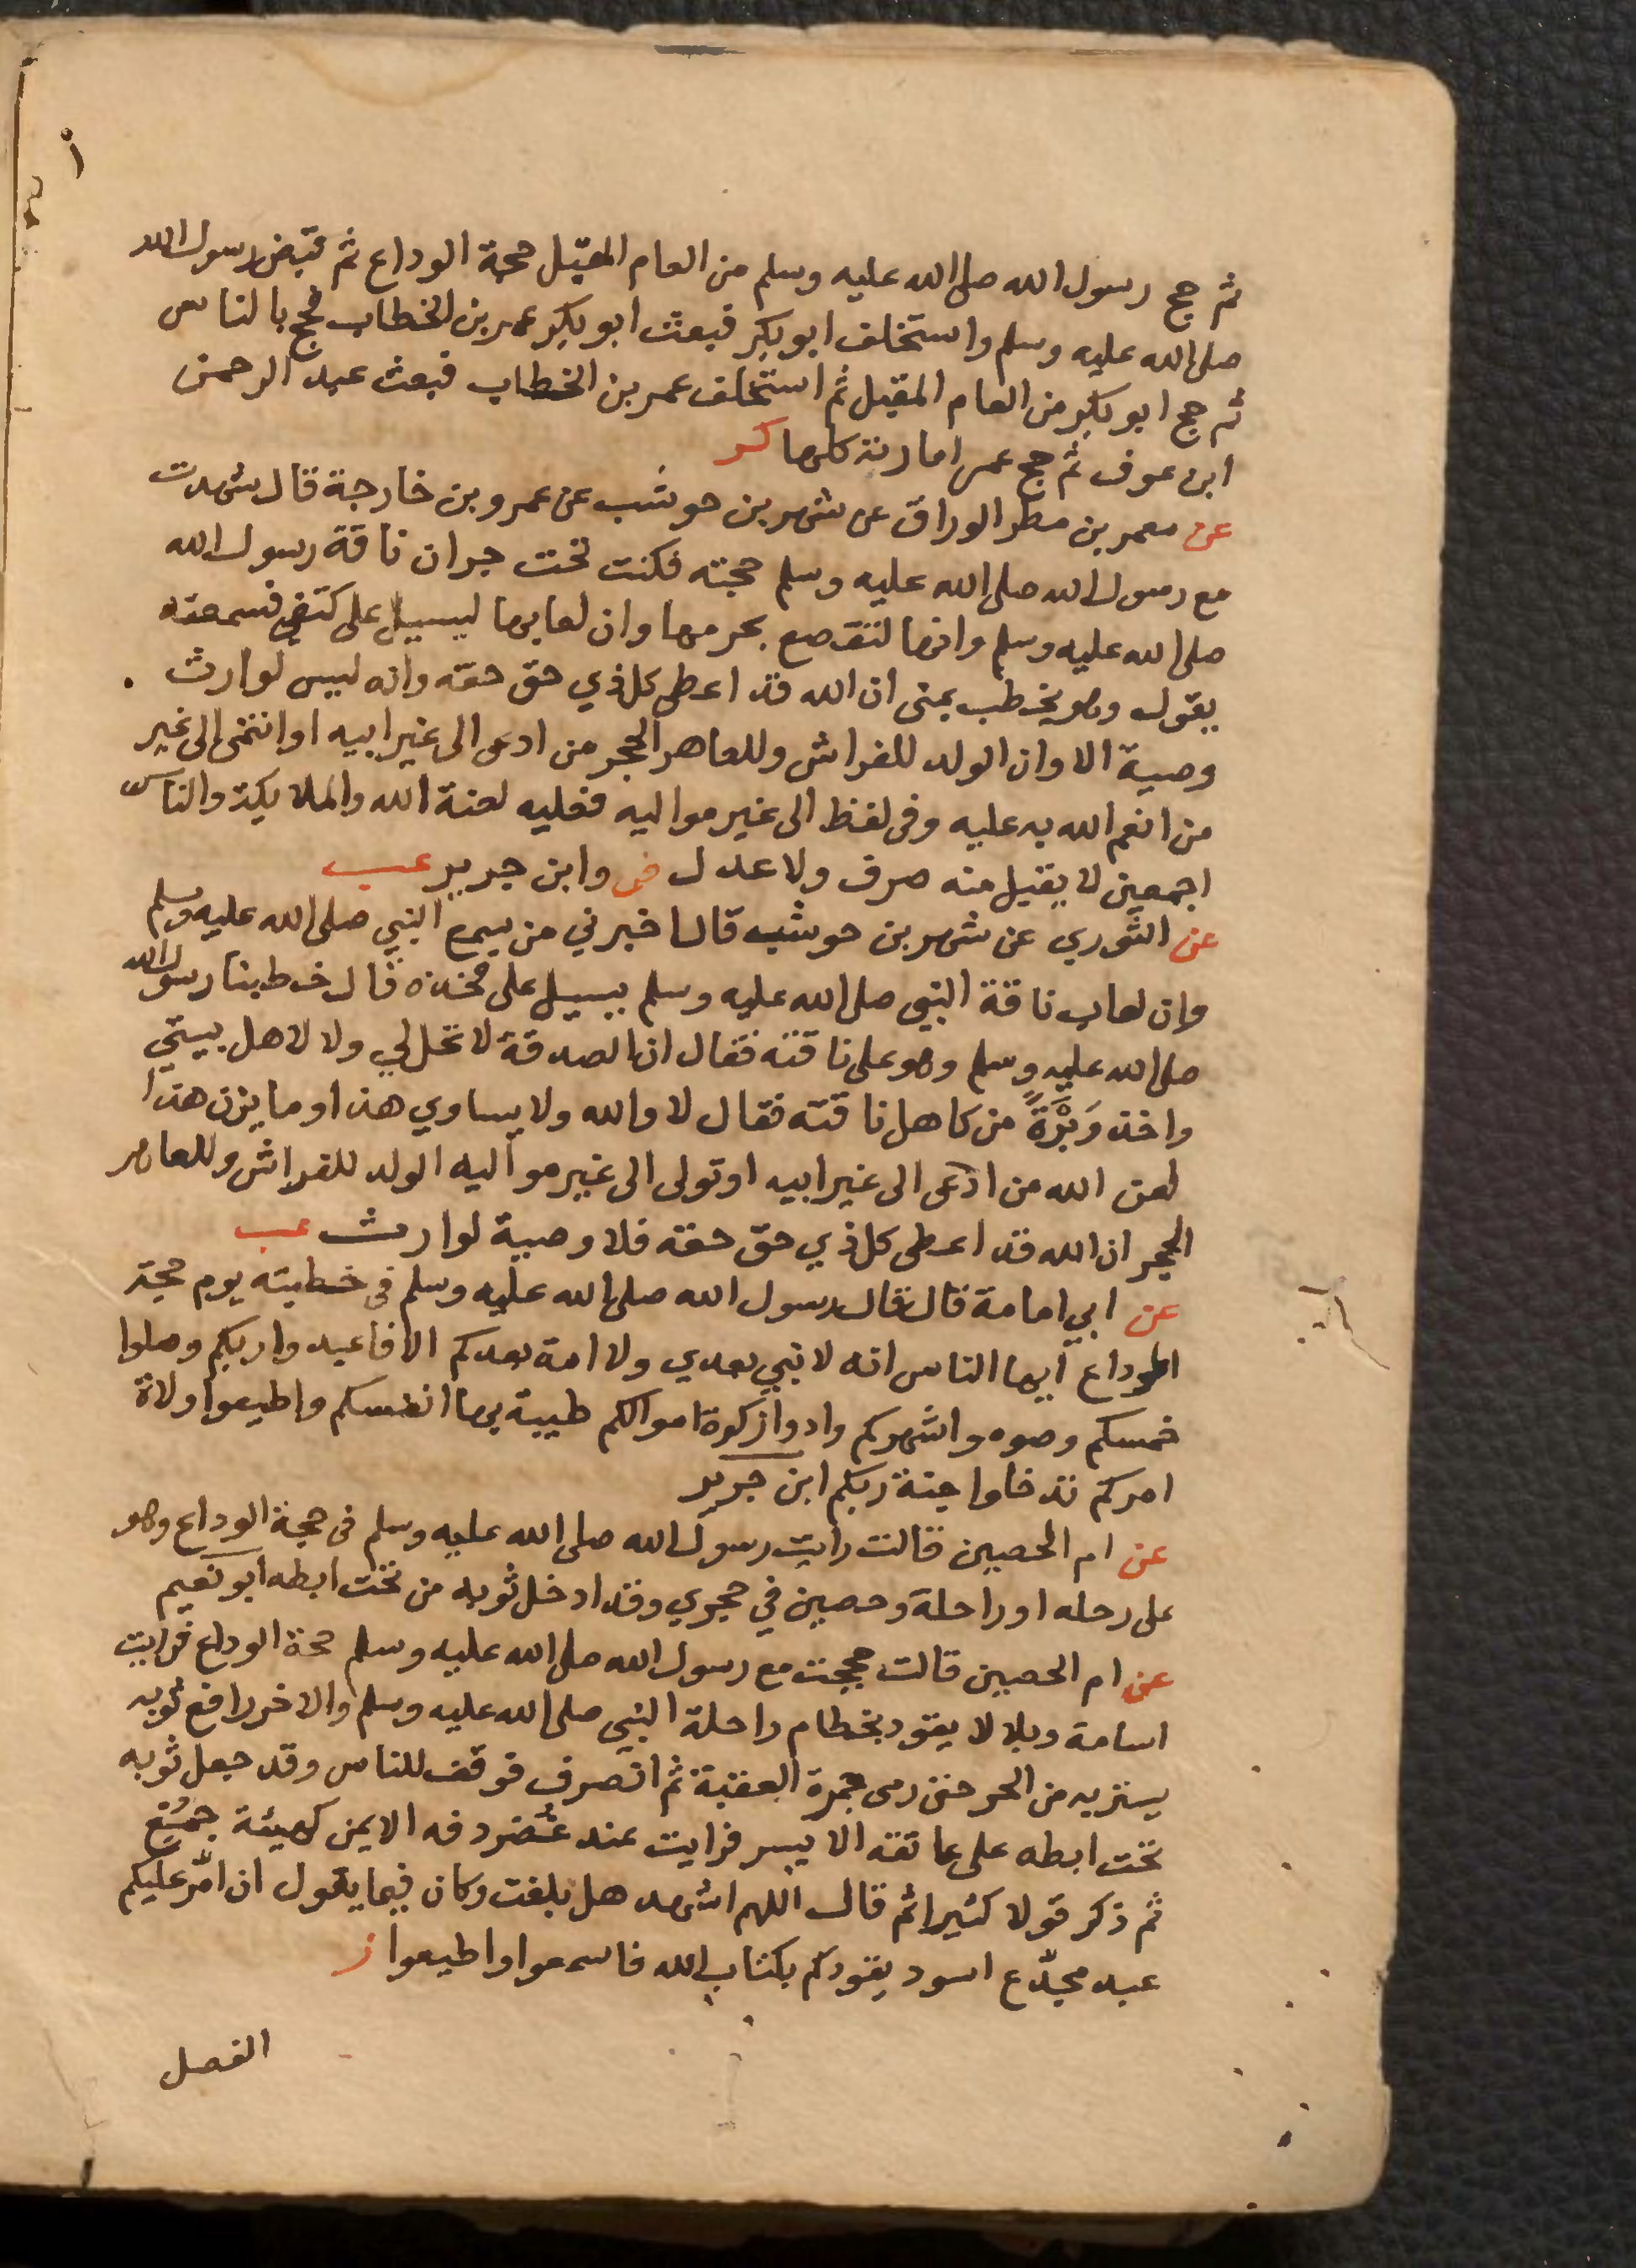 ثم حج رسول الله صلى الله عليه وسلم من العام المقبل حجة الوداع ثم قبض رسول الله
صلى الله عليه وسلم واستخلف ابو بكر فبعث ابو بكر عمر بن الخطاب فحج بالناس
ثم حج ابو بكر من العام المقبل ثم استخلف عمر بن الخطاب فبعث عبد الرحمن
ابن عوف ثم حج عمر امارته كلها كر
عن معمر بن مطر الوراق عن شهر بن حوشب عن عمرو بن خارجة قال شهدت
مع رسول الله صلى الله عليه وسلم حجته فكنت تحت جران ناقة رسول الله
صلى الله عليه وسلم وانها لتقصع بجرمها وان لعابها ليسيل على كتفي فسمعته
يقول وهو يخطب بمنى ان الله قد اعطى كل ذي حق حقه وانه ليس لوارث
وصية الا وان الولد للفراش وللعاهر الحجر من ادعى الى غير ابيه او انتمى الى غير
من انعم الله به عليه وفى لفظ الى غير مواليه فعليه لعنة الله والملايكة والناس
اجمعين لا يقبل منه صرف ولا عدل ض وابن جرير عب
عن الثوري عن شهر بن حوشب قال اخبرني من سمع النبي صلى الله عليه وسلم
وان لعاب ناقة النبي صلى الله عليه وسلم يسيل على فخذه قال خطبنا رسول الله
صلى الله عليه وسلم وهو على ناقته فقال ان الصدقة لا تحل لي ولا لاهل بيتي
واخذ وَبْرَةً من كاهل ناقته فقال لا والله ولا يساوي هذا وما يزن هذا
لعن الله من ادعى الى غير ابيه او تولى الى غير مواليه الولد للفراش وللعاهر
الحجر ان الله قد اعطى كل ذي حق حقه فلا وصية لوارث عب
عن ابي امامة قال قال رسول الله صلى الله عليه وسلم فى خطبته يوم حجة
الوداع ايها الناس انه لا نبي بعدي ولا امة بعدكم الا فاعبدوا ربكم وصلوا
خمسكم وصوموا شهركم وادوا زكوة اموالكم طيبة بها انفسكم واطيعوا ولاة
امركم تدخلوا جنة ربكم ابن جرير
عن ام الحصين قالت رايت رسول الله صلى الله عليه وسلم فى حجة الوداع وهو
على رحله او راحلة وحصين في حجري وقد ادخل ثوبه من تحت ابطه ابو نعيم
عن ام الحصين قالت حججت مع رسول الله صلى الله عليه وسلم حجة الوداع فرايت
اسامة وبلالا يقود بخطام راحلة النبي صلى الله عليه وسلم والاخر رافع ثوبه
يستره من الحر حتى رمى جمرة العقبة ثم انصرف فوقف للناس وقد جعل ثوبه
تحت ابطه على عاتقه الايسر فرايت عند غضروفه الايمن كهيئة جُمْع
ثم ذكر قولا كثيرا ثم قال اللهم اشهد هل بلغت وكان فيما يقول ان امّر عليكم
عبد مجدّع اسود يقودكم بكتاب الله فاسمعوا واطيعوا ز
الفصل